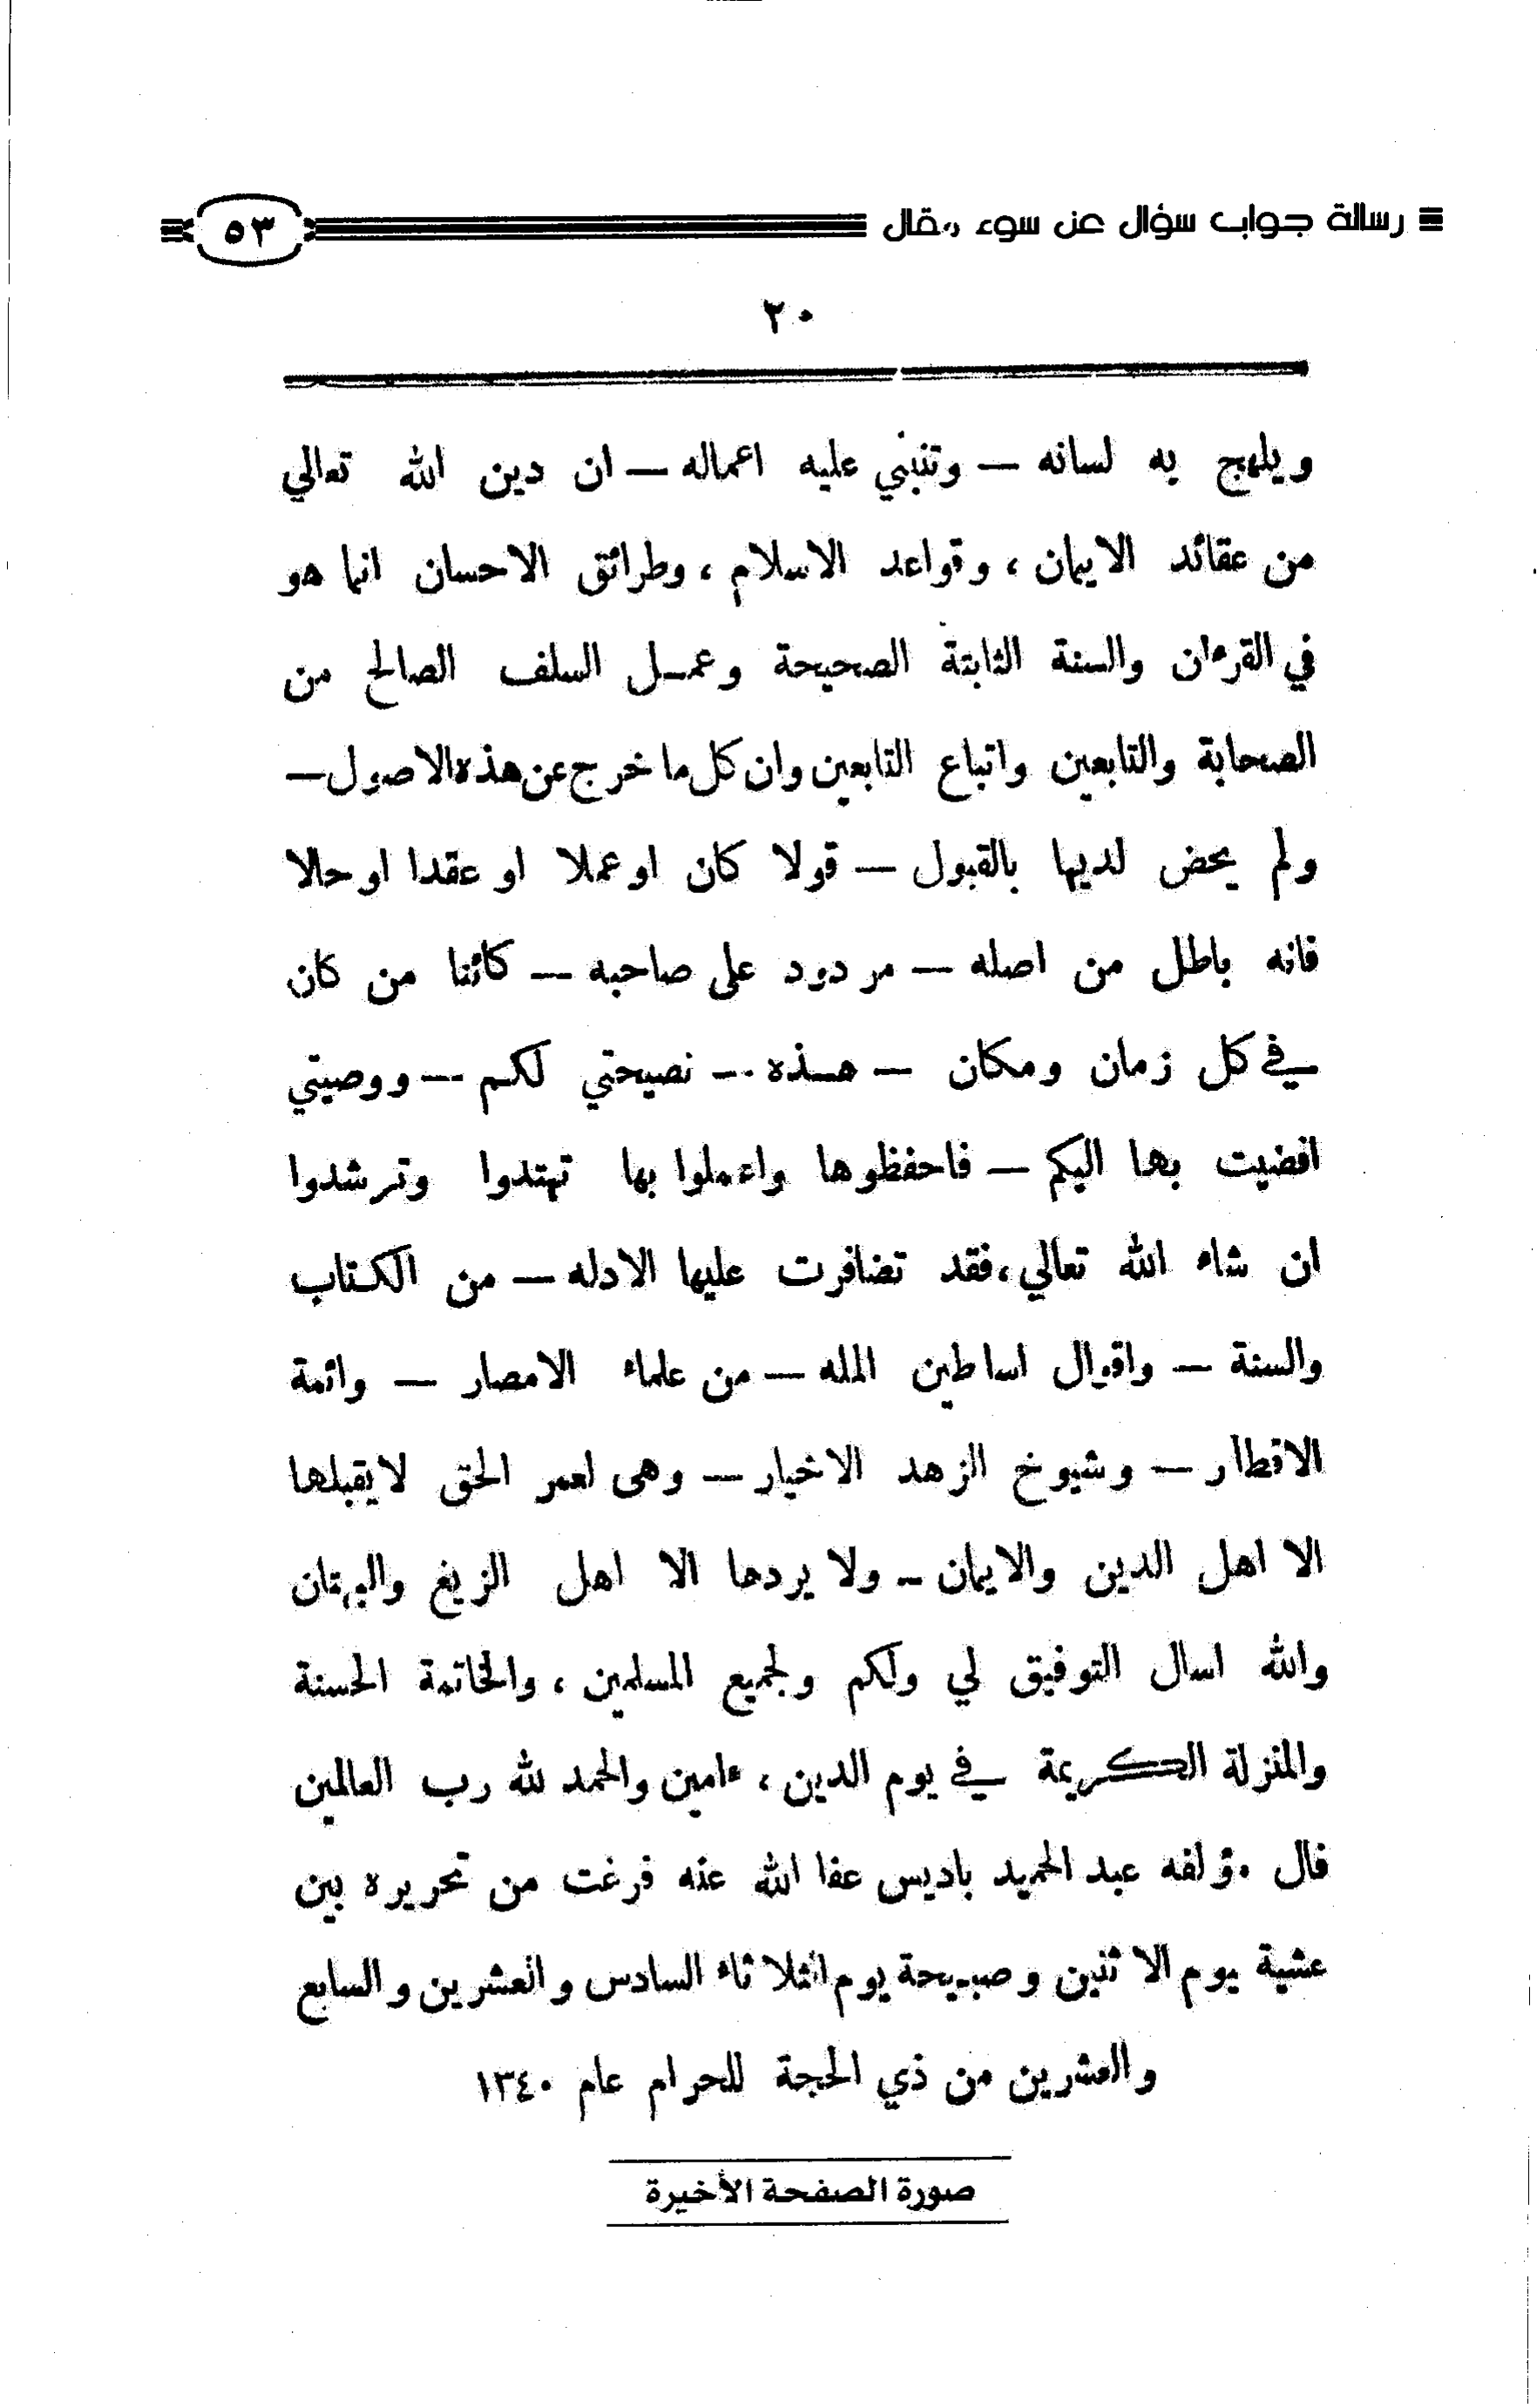 رسالة جواب سؤال عن سوء مقال
٥٣
٢٠
ويلهج به لسانه — وتنبني عليه اعماله — ان دين الله تعالي
من عقائد الايمان ، وقواعد الاسلام ، وطرائق الاحسان انما هو
في القرءان والسنة الثابتة الصحيحة وعمل السلف الصالح من
الصحابة والتابعين واتباع التابعين وان كل ما خرج عن هذه الاصول —
ولم يحض لديها بالقبول — قولا كان او عملا او عقدا او حالا
فانه باطل من اصله — مردود على صاحبه — كائنا من كان
في كل زمان ومكان — هذه — نصيحتي لكم — ووصيتي
افضيت بها اليكم — فاحفظوها واعملوا بها تهتدوا وترشدوا
ان شاء الله تعالي ، فقد تضافرت عليها الادله — من الكتاب
والسنة — واقوال اساطين المله — من علماء الامصار — وائمة
الاقطار — وشيوخ الزهد الاخيار — وهى لعمر الحق لا يقبلها
الا اهل الدين والايمان — ولا يردها الا اهل الزيغ والبهتان
والله اسال التوفيق لي ولكم ولجميع المسلمين ، والخاتمة الحسنة
والمنزلة الكريمة في يوم الدين ، ءامين والحمد لله رب العالمين
قال مؤلفه عبد الحميد باديس عفا الله عنه فرغت من تحريره بين
عشية يوم الاثنين وصبيحة يوم الثلاثاء السادس والعشرين والسابع
والعشرين من ذي الحجة للحرام عام ١٣٤٠
صورة الصفحة الأخيرة